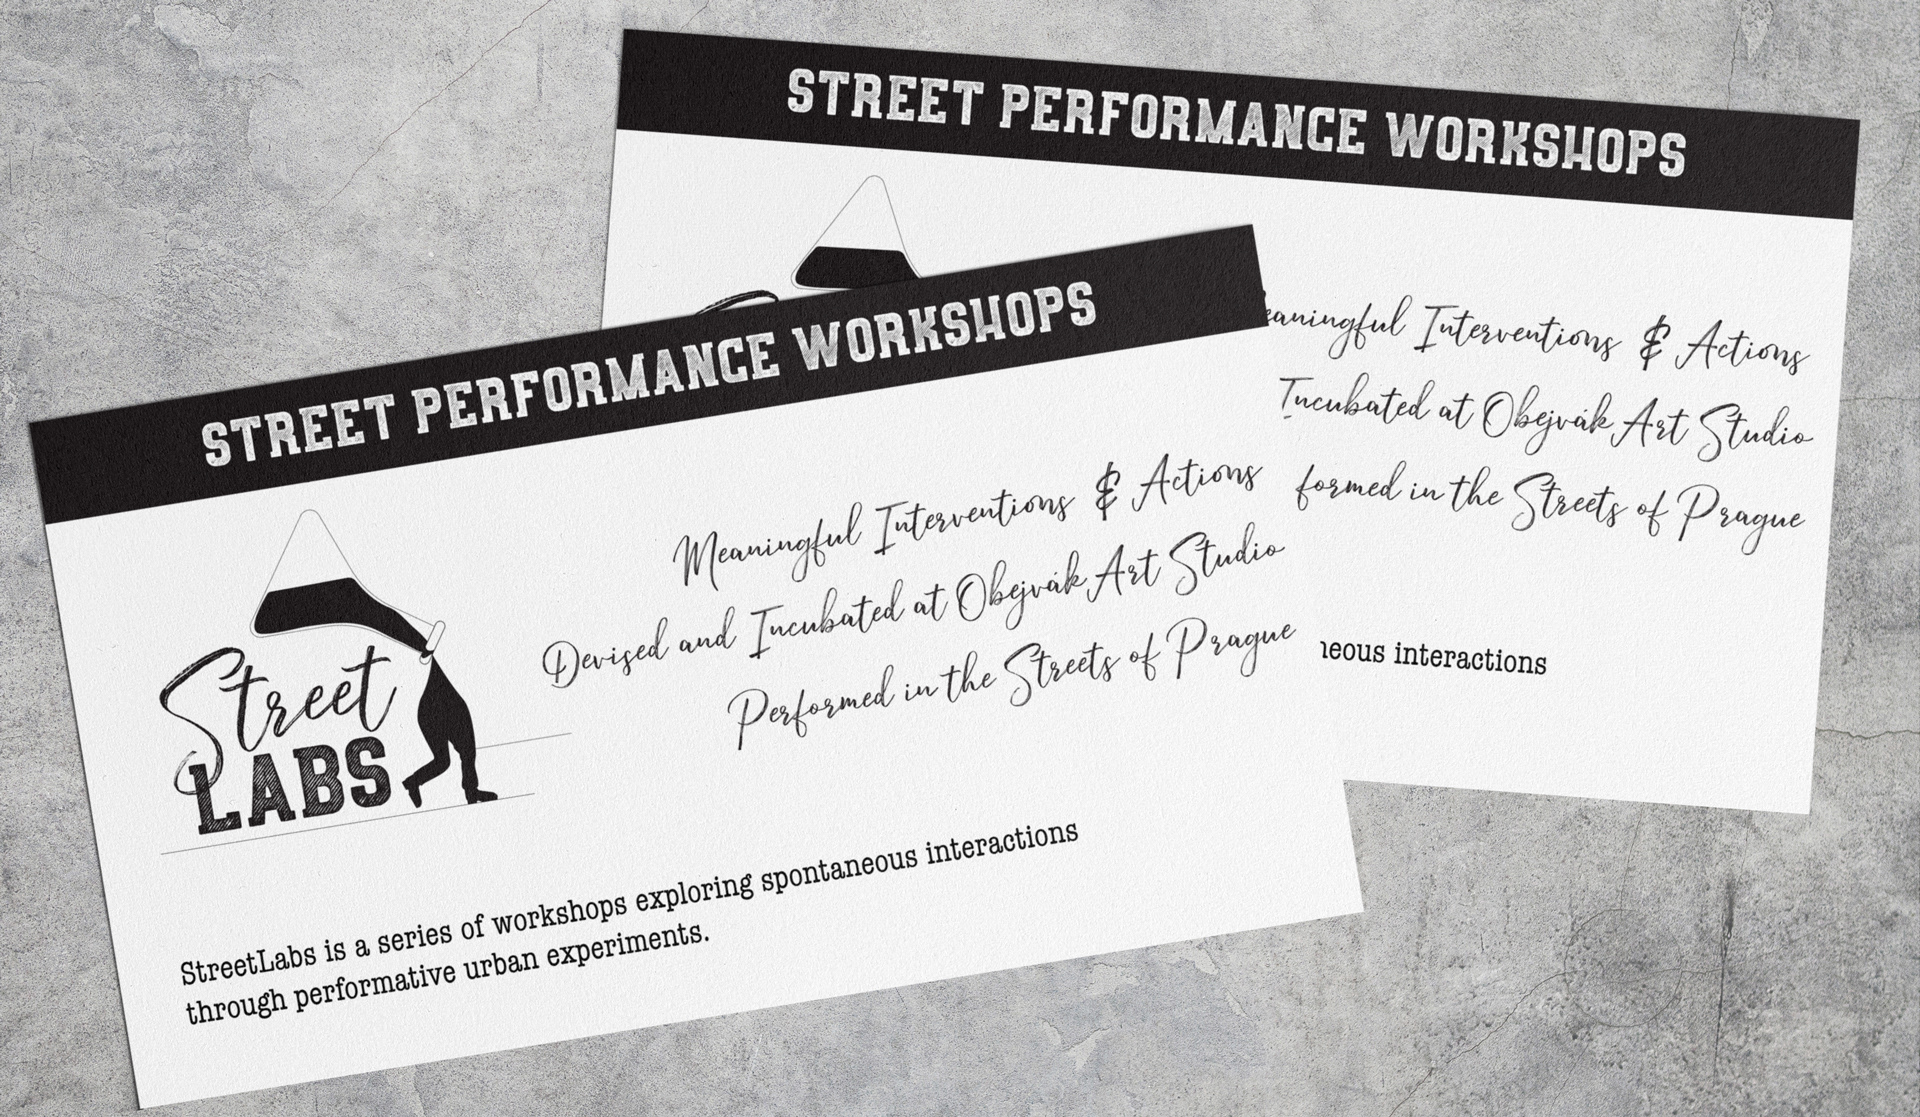 STREET PERFORMANCE WORKSHOPS
Meaningful Interventions & Actions
Devised and Incubated at Obejvák Art Studio
Performed in the Streets of Prague
Street
LABS
StreetLabs is a series of workshops exploring spontaneous interactions
through performative urban experiments.
STREET PERFORMANCE WORKSHOPS
eaningful Interventions & Actions
Incubated at Obejvák Art Studio
formed in the Streets of Prague
neous interactions